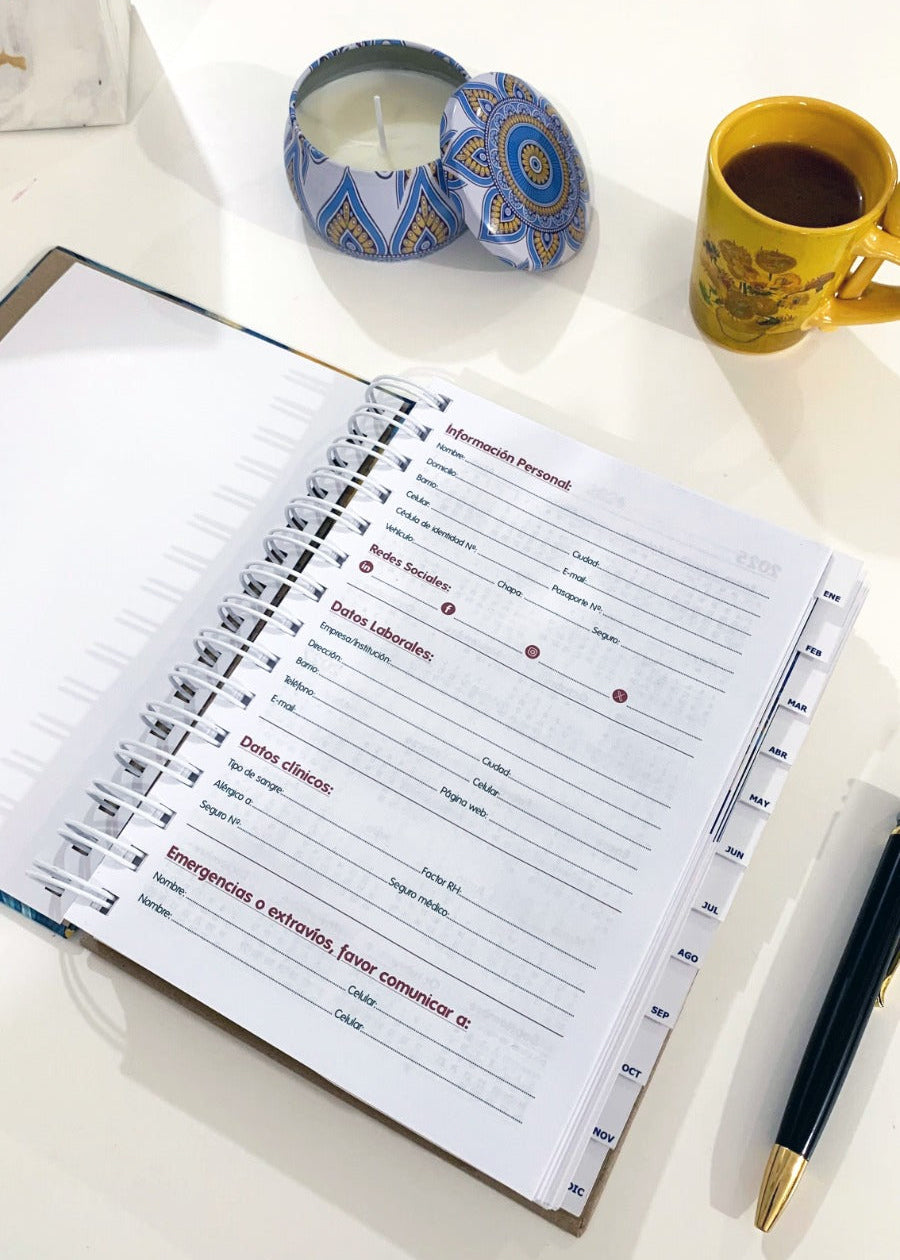 Información Personal:
Nombre:
Domicilio:
Barrio: Ciudad:
Celular: E-mail:
Cédula de identidad Nº: Pasaporte Nº:
Vehículo: Chapa: Seguro:
Redes Sociales:
in f X
Datos Laborales:
Empresa/Institución:
Dirección:
Barrio: Ciudad:
Teléfono: Celular:
E-mail: Página web:
Datos clínicos:
Tipo de sangre: Factor RH:
Alérgico a:
Seguro Nº: Seguro médico:
Emergencias o extravíos, favor comunicar a:
Nombre: Celular:
Nombre: Celular:
2025
ENE
FEB
MAR
ABR
MAY
JUN
JUL
AGO
SEP
OCT
NOV
DIC